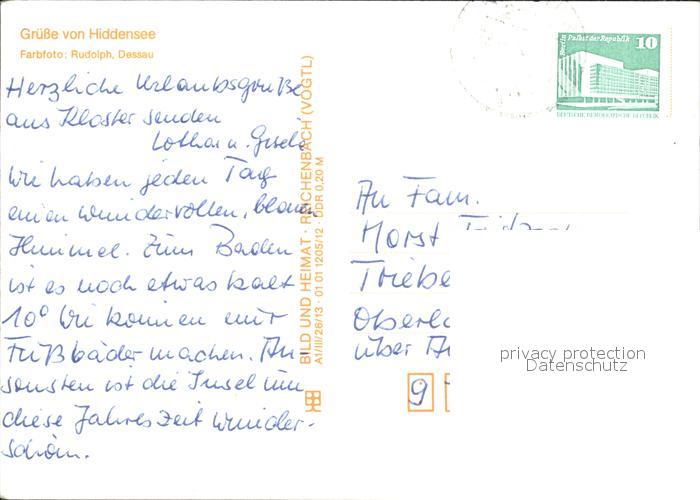 Grüße von Hiddensee
Farbfoto: Rudolph, Dessau
Herzliche Urlaubsgrüße
aus Kloster senden
Lothar u. Gisela
Wir haben jeden Tag
einen wundervollen, blauen
Himmel. Zum Baden
ist es noch etwas kalt
10° Wir können nur
Fußbäder machen. An-
sonsten ist die Insel um
diese Jahreszeit wunder-
schön.
BILD UND HEIMAT · REICHENBACH (VOGTL)
A1/III/26/13 · 01 01 1205/12 · DDR 0,20 M
Berlin Palast der Republik
10
DEUTSCHE DEMOKRATISCHE REPUBLIK
An Fam.
Horst
Triebe
Oberlo
über
9
privacy protection
Datenschutz